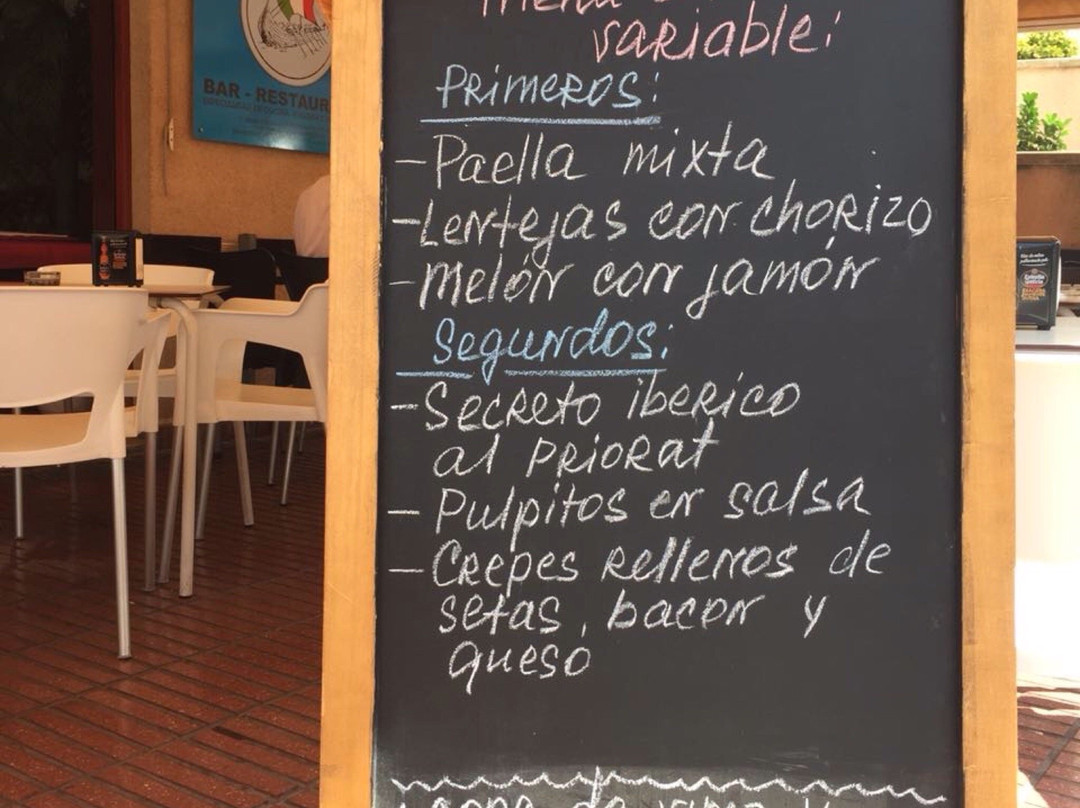 menú
variable:
Primeros:
-Paella mixta
-Lentejas con chorizo
-Melón con jamón
Segundos:
-Secreto iberico
al priorat
-Pulpitos en salsa
-Crepes rellenos de
setas, bacon y
queso
BAR - RESTAUR